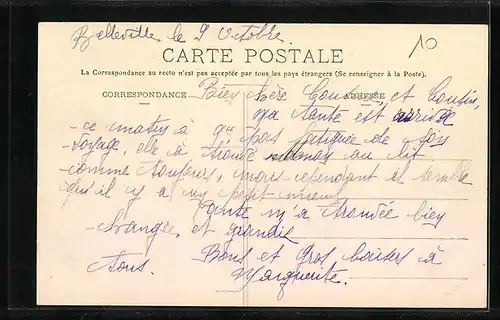 Belleville le 9 Octobre.
10
CARTE POSTALE
La Correspondance au recto n'est pas acceptée par tous les pays étrangers (Se renseigner à la Poste).
CORRESPONDANCE
ADRESSE
Bien chère Cousine, et Cousin,
ma tante est arrivée
ce matin à 9h pas fatiguée de son
voyage, elle à trouvé au lit
comme toujours, mais cependant il semble
qu'il y a un petit mieux
Tante m'a trouvée bien
changée, et grandie
Bons et gros baisers à
tous. Marguerite.